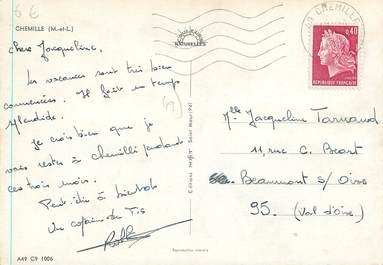 6 €
CHEMILLE (M.-et-L.)
Chère Jacqueline,
Les vacances sont très bien
commencées. Il fait un temps
splendide.
Je crois bien que je
vais rester à Chemillé pendant
ces trois mois.
Peut-être à bientôt
Un copain du
A49 C9 1006
NATURELLES
(9)
Reproduction interdite
CHEMILLE
0,40
REPUBLIQUE FRANÇAISE
Melle Jacqueline Tarnaud
11, rue C. Béart
Beaumont s/ Oise
95. (Val d'oise)